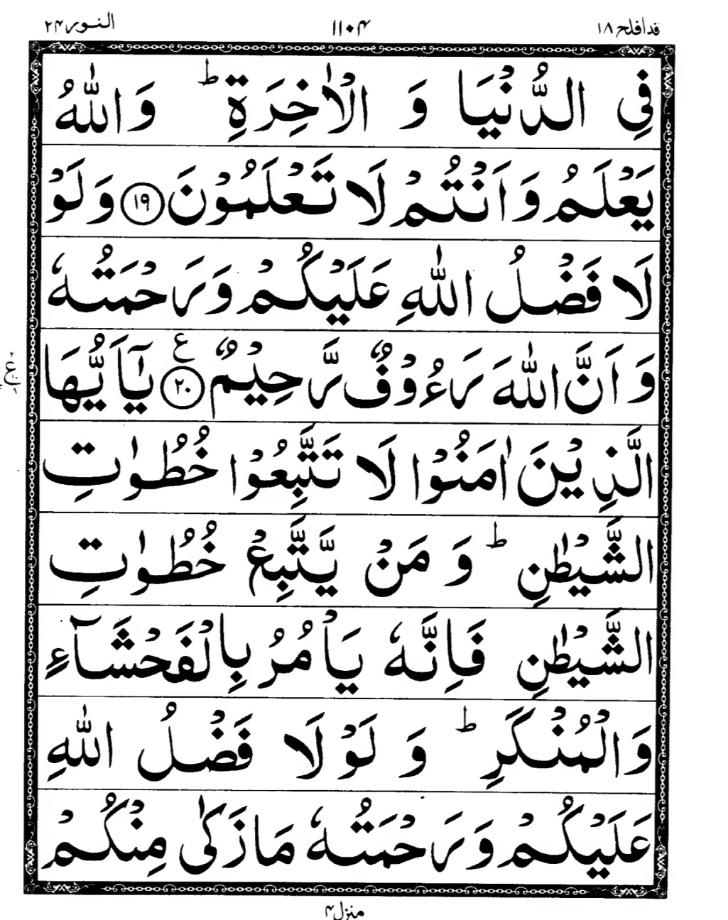 النور ٢٤ ١١٠٤ قد افلح ١٨
فِي الدُّنْيَا وَ الْاٰخِرَةِ ؕ وَاللّٰهُ
يَعْلَمُ وَاَنْتُمْ لَا تَعْلَمُوْنَ ۝١٩ وَلَوْ
لَا فَضْلُ اللّٰهِ عَلَيْكُمْ وَرَحْمَتُهٗ
وَاَنَّ اللّٰهَ رَءُوْفٌ رَّحِيْمٌ ۝٢٠ ع يٰۤاَيُّهَا
الَّذِيْنَ اٰمَنُوْا لَا تَتَّبِعُوْا خُطُوٰتِ
الشَّيْطٰنِ ؕ وَ مَنْ يَّتَّبِعْ خُطُوٰتِ
الشَّيْطٰنِ فَاِنَّهٗ يَاْمُرُ بِالْفَحْشَآءِ
وَالْمُنْكَرِ ؕ وَ لَوْلَا فَضْلُ اللّٰهِ
عَلَيْكُمْ وَرَحْمَتُهٗ مَا زَكٰى مِنْكُمْ
منزل ٤